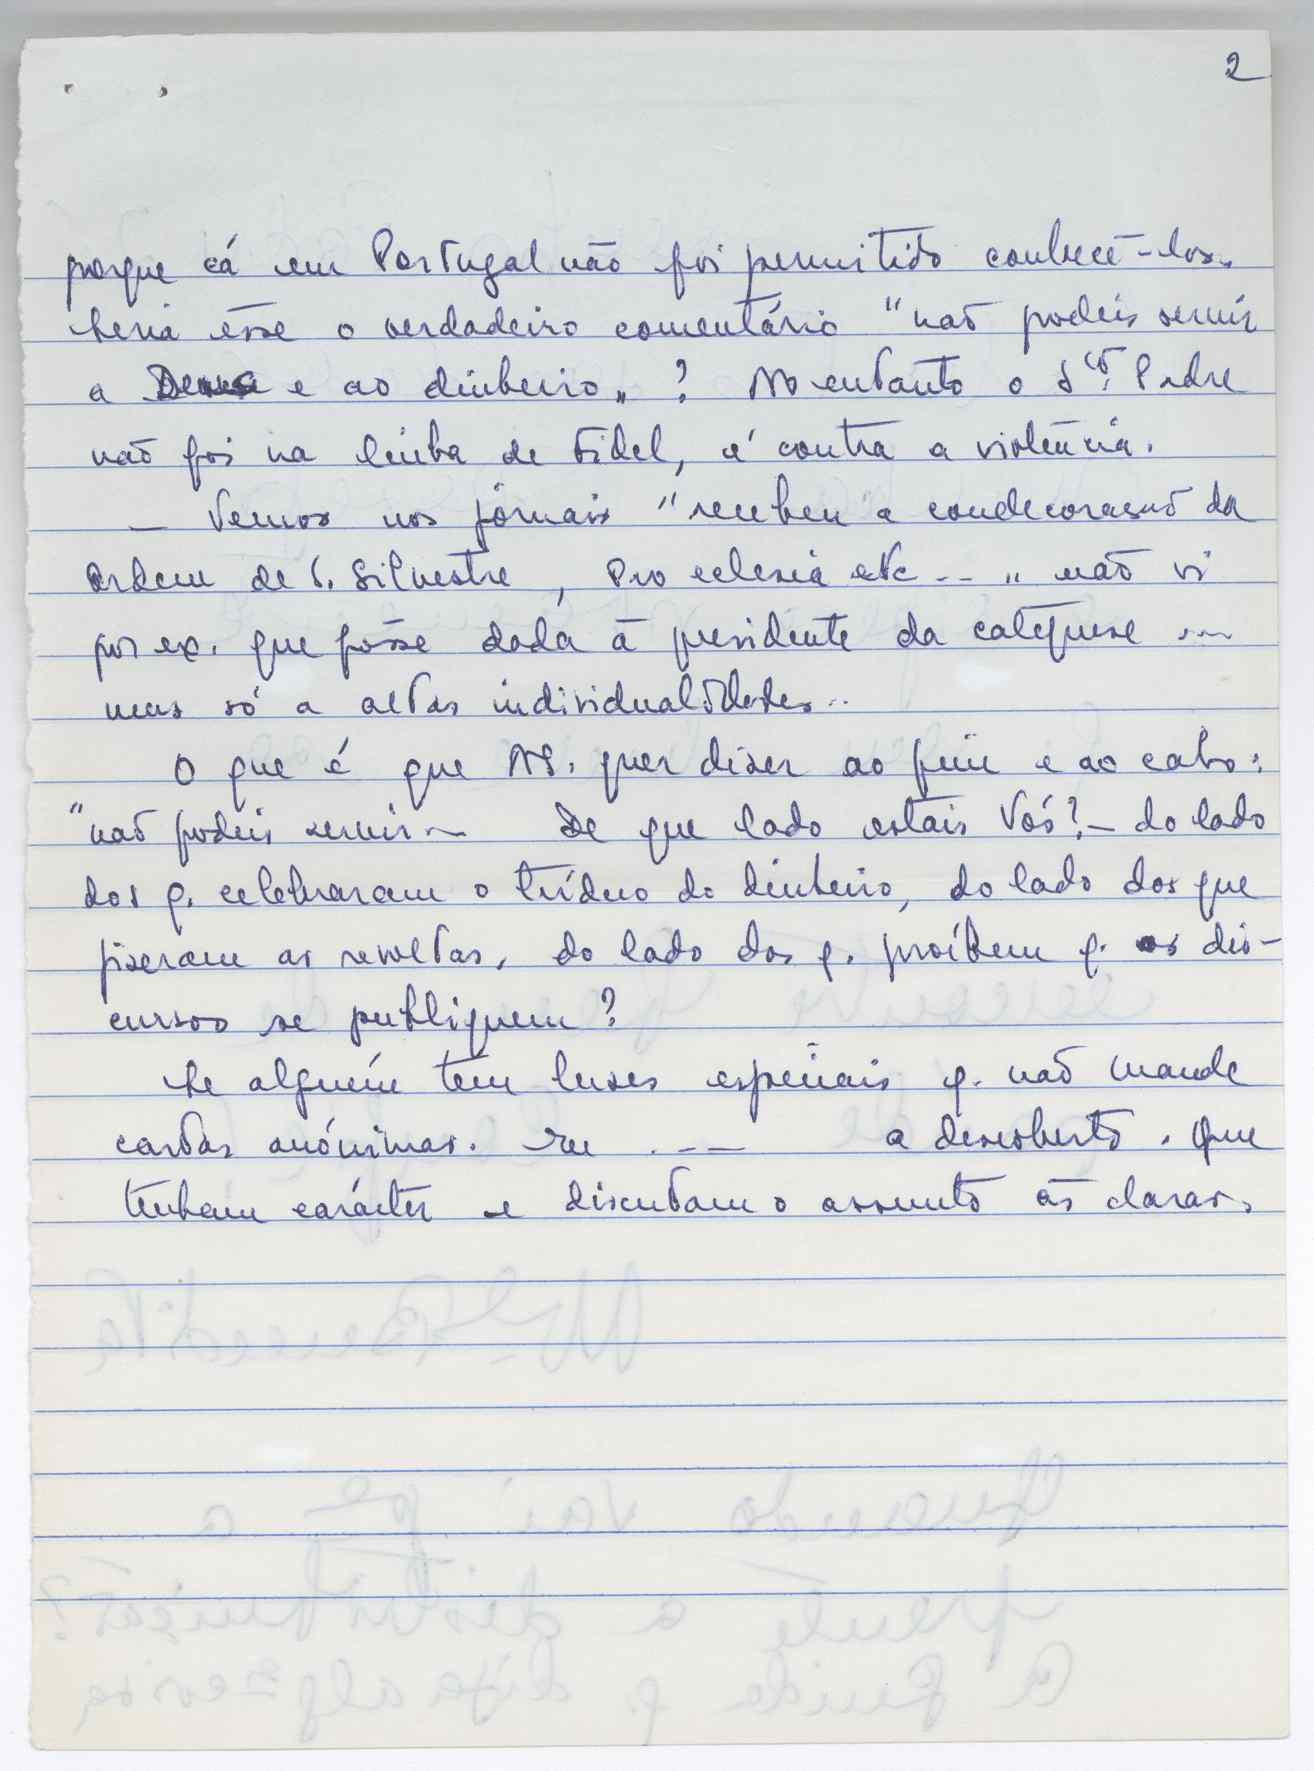 2
porque cá em Portugal não foi permitido conhecê-los.
Seria êsse o verdadeiro comentário "não podeis servir
a Deus e ao dinheiro" ? No entanto o Stº. Padre
não foi na linha de Fidel, é contra a violência.
— Vemos nos jornais "recebeu a condecoração da
Ordem de S. Silvestre, Pro eclesia etc..." não vi
por ex. que fôsse dada à presidente da catequese ...
mas só a altas individualidades..
O que é que NS. quer dizer ao fim e ao cabo:
"não podeis servir~ De que lado estais Vós? — do lado
dos q. celebraram o tríduo do dinheiro, do lado dos que
fizeram as revoltas, do lado dos q. proíbem q. os dis-
cursos se publiquem?
Se alguém tem luzes especiais q. não mande
cartas anónimas. ... a descoberto. Que
tenham carácter e discutam o assunto às claras.